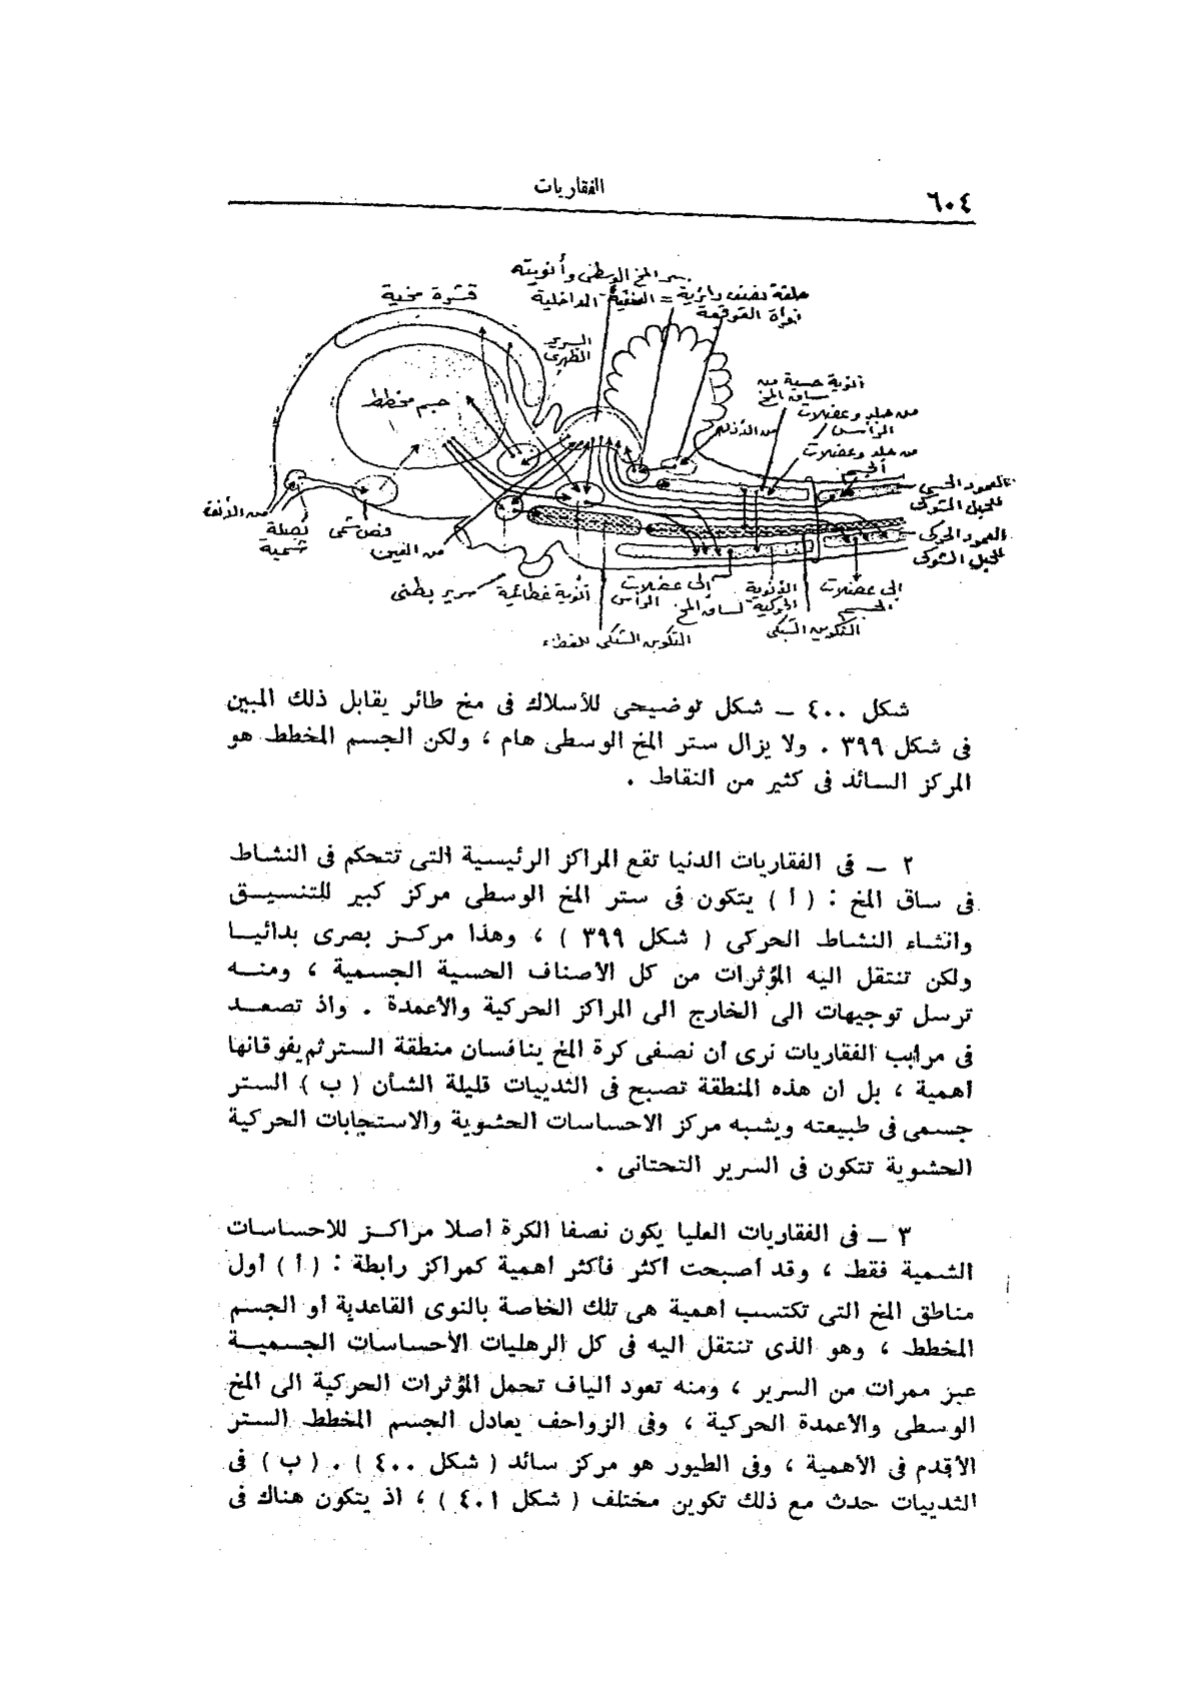 ٦٠٤
الفقاريات
ستر المخ الوسطى وأنويته
حلقة نصف دائرية = العنقية الداخلية
نواة القوقعة
قشرة مخية
السرير
الظهرى
جسم مخطط
أنوية حسية من
ساق المخ
من جلد وعضلات
الرأس
من الأذن
من جلد وعضلات
الجسم
العمود الحسى
للحبل الشوكى
العمود الحركى
للحبل الشوكى
من الأنف
بصلة
شمية
فص شمى
من العين
سرير بطنى
أنوية غطائية
إلى عضلات
الرأس
الأنوية
الحركية لساق المخ
إلى عضلات
الجسم
التكوين الشبكى
التكوين الشبكى للغطاء
شكل ٤٠٠ ــ شكل توضيحى للأسلاك فى مخ طائر يقابل ذلك المبين
فى شكل ٣٩٩ . ولا يزال ستر المخ الوسطى هام ، ولكن الجسم المخطط هو
المركز السائد فى كثير من النقاط .
٢ ــ فى الفقاريات الدنيا تقع المراكز الرئيسية التى تتحكم فى النشاط
فى ساق المخ : ( أ ) يتكون فى ستر المخ الوسطى مركز كبير للتنسيق
وانشاء النشاط الحركى ( شكل ٣٩٩ ) ، وهذا مركز بصرى بدائيا
ولكن تنتقل اليه المؤثرات من كل الأصناف الحسية الجسمية ، ومنه
ترسل توجيهات الى الخارج الى المراكز الحركية والأعمدة . واذ تصعد
فى مراتب الفقاريات نرى أن نصفى كرة المخ ينافسان منطقة الستر ثم يفوقانها
أهمية ، بل ان هذه المنطقة تصبح فى الثدييات قليلة الشأن ( ب ) الستر
جسمى فى طبيعته ويشبه مركز الاحساسات الحشوية والاستجابات الحركية
الحشوية تتكون فى السرير التحتانى .
٣ ــ فى الفقاريات العليا يكون نصفا الكرة أصلا مراكز للاحساسات
الشمية فقط ، وقد أصبحت أكثر فأكثر أهمية كمراكز رابطة : ( أ ) أول
مناطق المخ التى تكتسب أهمية هى تلك الخاصة بالنوى القاعدية أو الجسم
المخطط ، وهو الذى تنتقل اليه فى كل الرهليات الأحساسات الجسمية
عبر ممرات من السرير ، ومنه تعود الياف تحمل المؤثرات الحركية الى المخ
الوسطى والأعمدة الحركية ، وفى الزواحف يعادل الجسم المخطط الستر
الأقدم فى الأهمية ، وفى الطيور هو مركز سائد ( شكل ٤٠٠ ) . ( ب ) فى
الثدييات حدث مع ذلك تكوين مختلف ( شكل ٤٠١ ) ، اذ يتكون هناك فى